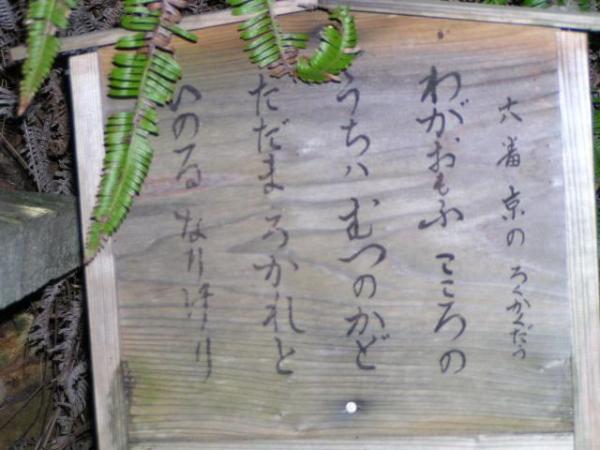 六番 京の ろくかくだう
わがおもふ こころの
うちハ むつのかど
ただまろかれと
いのるなりけり